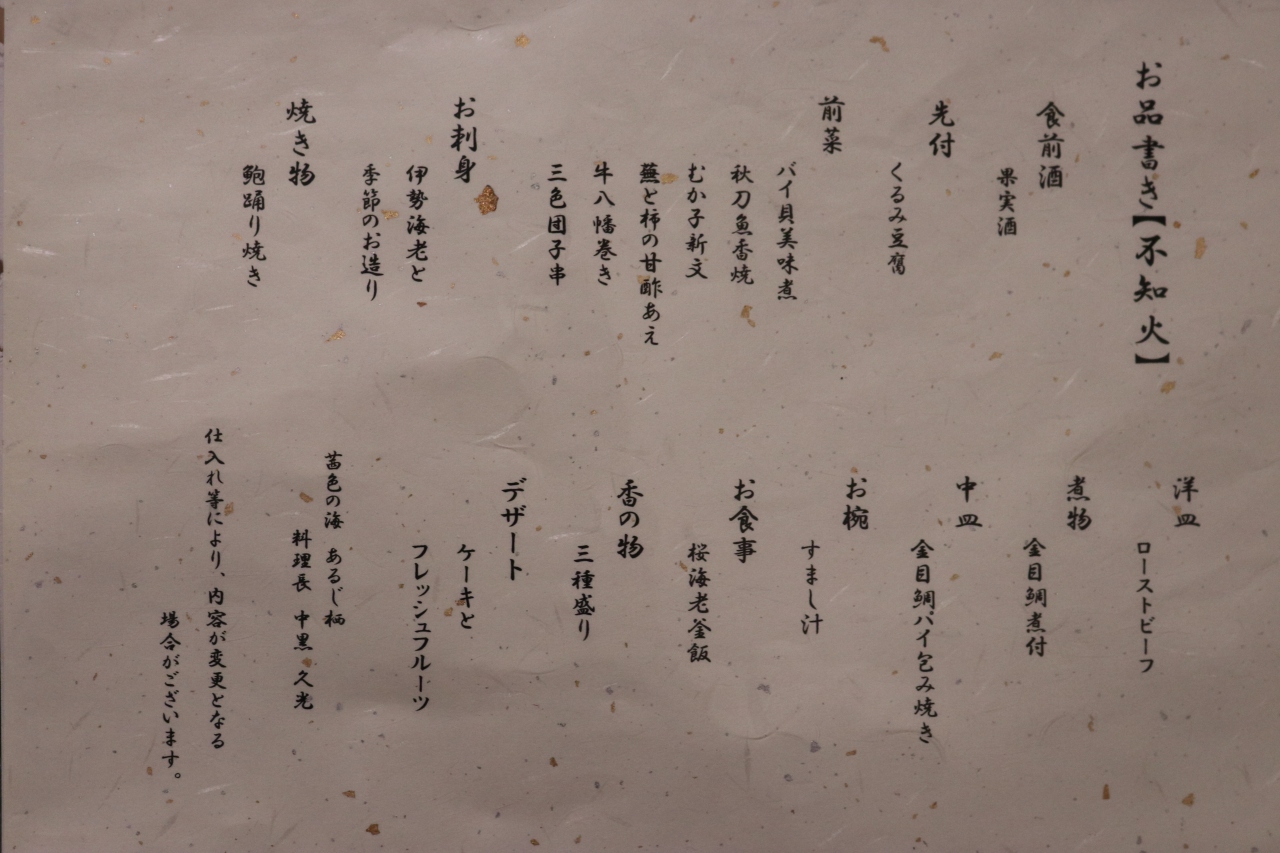 お品書き【不知火】
食前酒
果実酒
先付
くるみ豆腐
前菜
バイ貝美味煮
秋刀魚香焼
むか子新丈
蕪と柿の甘酢あえ
牛八幡巻き
三色団子串
お刺身
伊勢海老と
季節のお造り
焼き物
鮑踊り焼き
洋皿
ローストビーフ
煮物
金目鯛煮付
中皿
金目鯛パイ包み焼き
お椀
すまし汁
お食事
桜海老釜飯
香の物
三種盛り
デザート
ケーキと
フレッシュフルーツ
茜色の海 あるじ栖
料理長 中黒 久光
仕入れ等により、内容が変更となる
場合がございます。